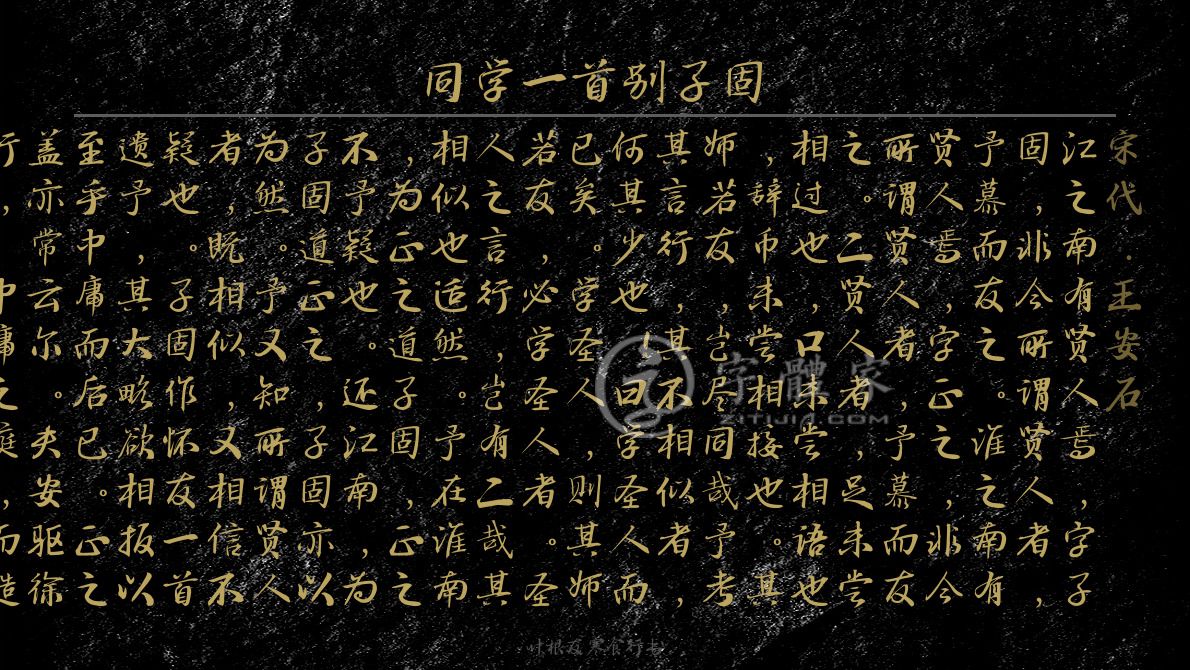 同学一首别子固
宋代·王安石
江之南有贤人焉，字子
固，非今所谓贤人者，
予慕而友之。淮之南有
贤人焉，字正之，非今
所谓贤人者，予慕而友
之。二贤人者，足未尝
相过也，口未尝相语也
，辞币未尝相接也。其
师若友，岂尽同哉予考
其言行，其不相似者，
何其少也！曰学圣人而
已矣。学圣人，则其师
若友，必学圣人者。圣
人之言行，岂有二哉其
相似也适然。予在淮南
，为正之道子固，正之
不予疑也。还江南，为
子固道正之，子固亦以
为然。予又知所谓贤人
者，既相似，又相信不
疑也。子固作怀友一首
遗予，其大略欲相扳以
至乎中庸而后已。正之
盖亦常云尔。夫安驱徐
行，中庸之庭，而造
字體家
ZITIJIA.COM
叶根友寒食行书